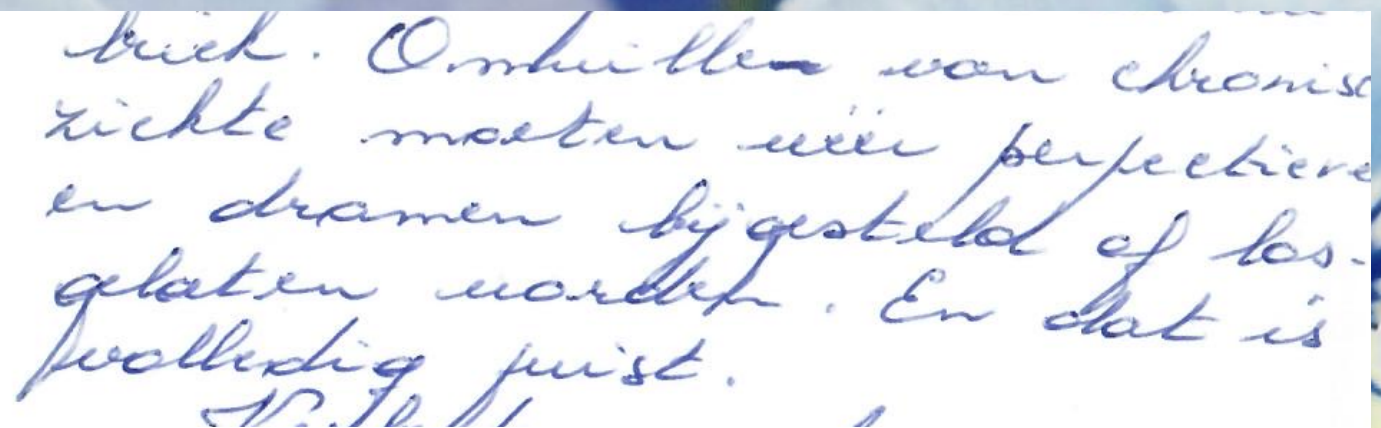 briek. Omwille van chronisc
ziekte moeten weer perfectieve
en dramen bijgesteld of los-
gelaten worden. En dat is
volledig juist.